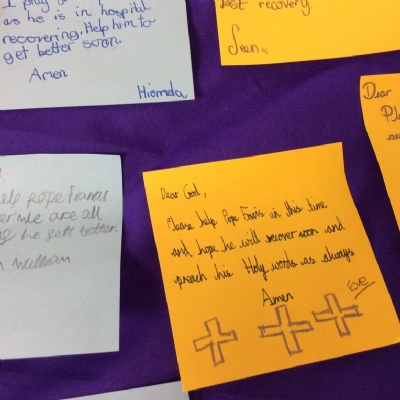 I pray
as he is in hospital
recovering. Help him to
get better soon.
Amen
Hiemda
fast recovery.
Sean.
Dear
elp pope Francis
we are all
he get better.
Dear God,
Please help Pope Francis in this time
and hope he will recover soon and
preach his Holy words as always
Amen
Eve